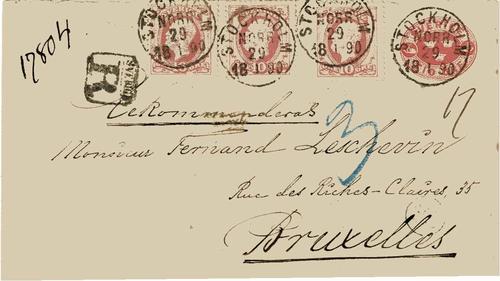 STOCKHOLM NORR 29 1 90 18
STOCKHOLM NORR 29 1 90 18
STOCKHOLM NORR 29 1 90 18
STOCKHOLM NORR 29 1 90 18
10
10
17804
R
Rekommenderas
3
17
Monsieur Fernand Leschevin
Rue des Riches-Claires, 35
Bruxelles